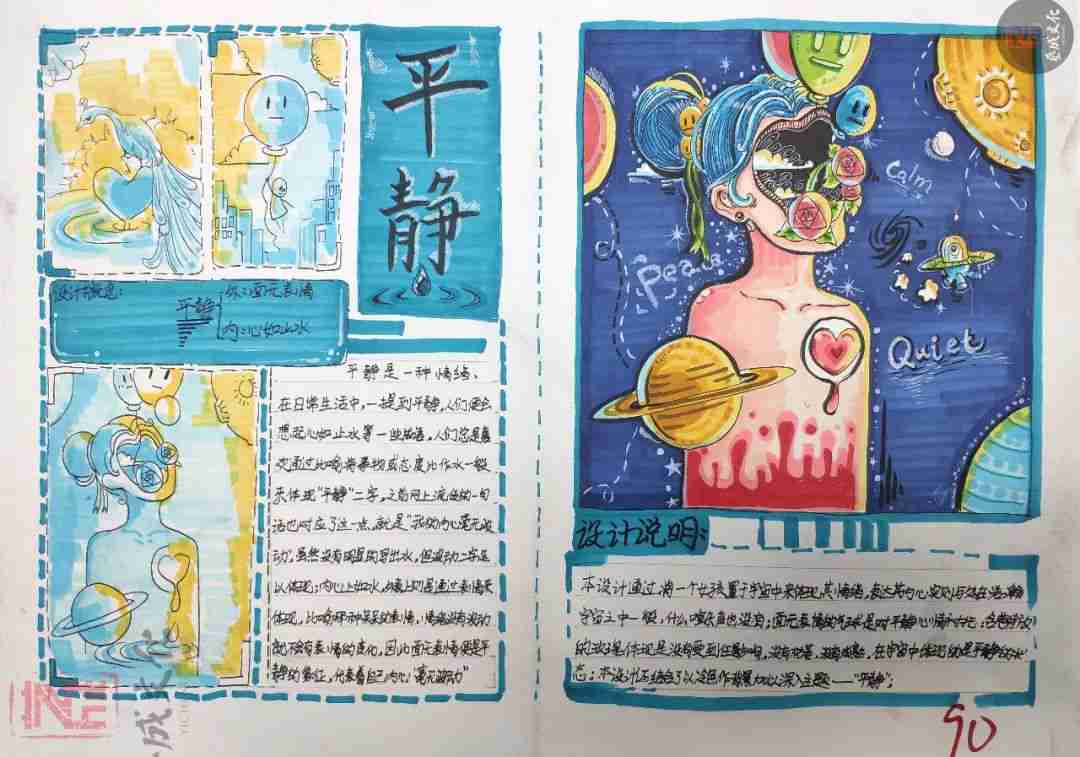 平
静
设计概念:
平静
外:面无表情
内:心如止水
平静是一种情绪、
在日常生活中,一提到平静,人们便会
想起心如止水等一些成语。人们总是喜
欢通过比喻将事物或态度比作水一般
来体现"平静"二字,之前网上流传的一句
话也对应了这一点,就是"我的内心毫无波
动",虽然没有明显的写出水,但波动二字足
以体现;内心上如水,外表上则是通过表情来
体现,比如那种呆呆的表情,情绪没有波动
就不会有表情的变化,因此面无表情便是平
静的象征,代表着自己内心"毫无波动"
Calm
Peace
Quiet
设计说明:
本设计通过将一个女孩置于宇宙中来体现其情绪,表达其内心实则与处在浩瀚
宇宙之中一般,什么声也没有;面无表情的气球是对平静心情的
的玫瑰是体现是没有受到任何影响,没有在宇宙中体现的是平静的状
态;本设计还结合了以冷色作背景加以深入主题——"平静";
90
成文化